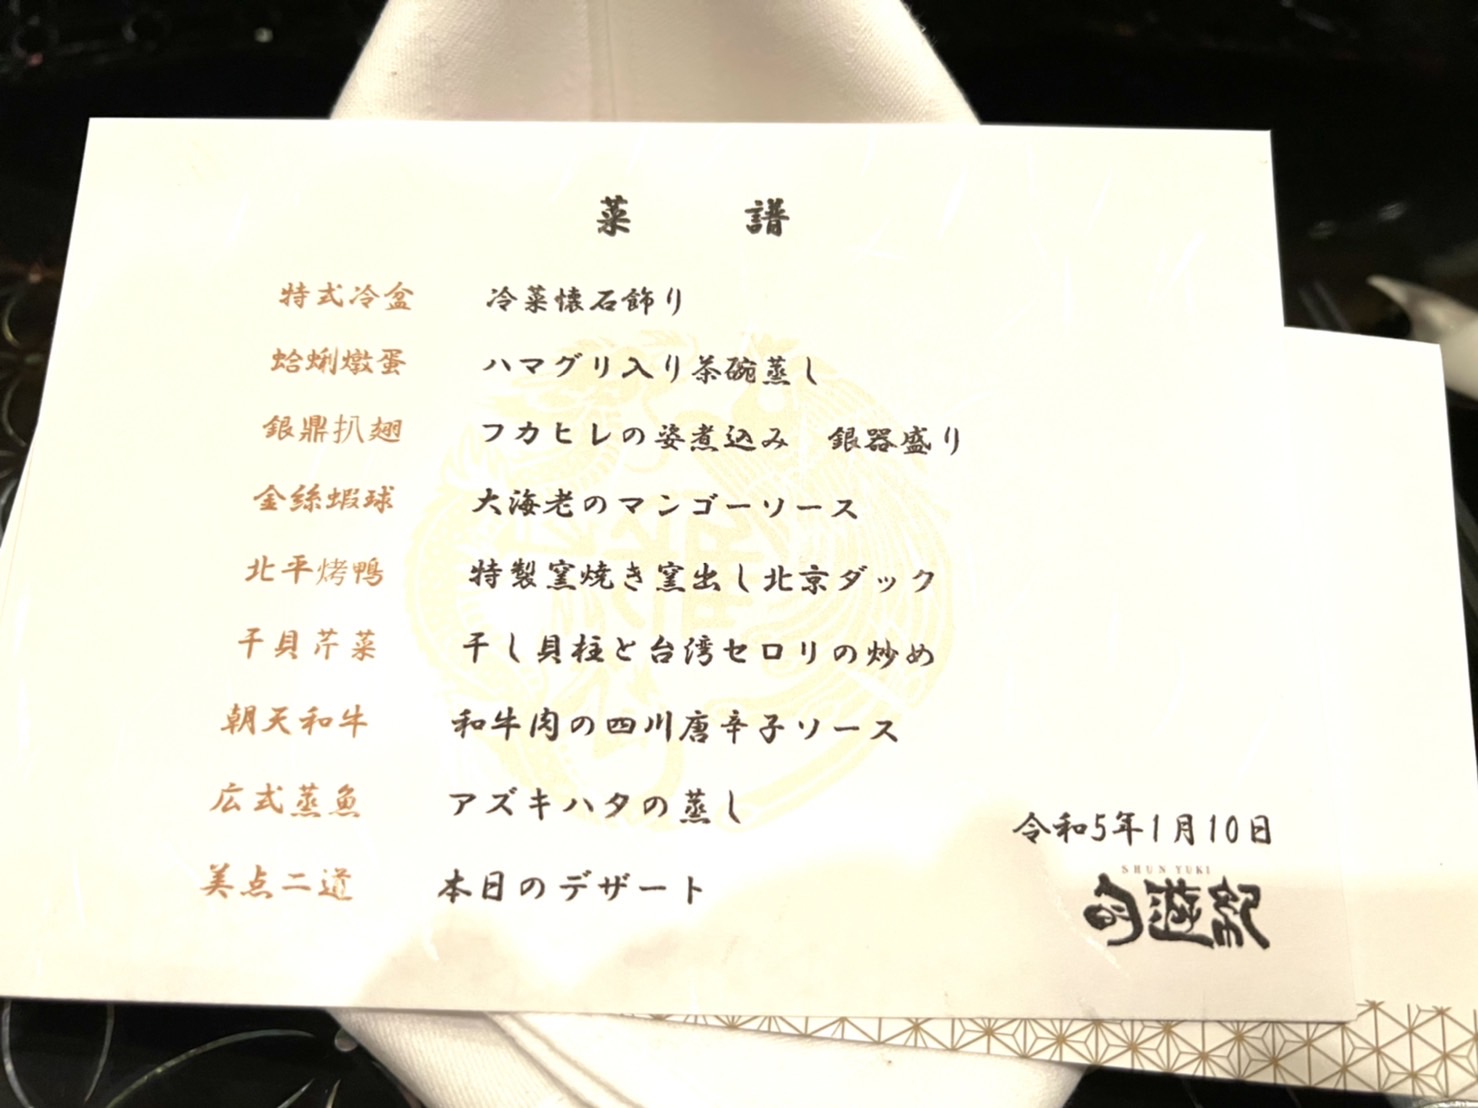 菜 譜
特式冷盆 冷菜懐石飾り
蛤蜊燉蛋 ハマグリ入り茶碗蒸し
銀鼎扒翅 フカヒレの姿煮込み 銀器盛り
金絲蝦球 大海老のマンゴーソース
北平烤鴨 特製窯焼き窯出し北京ダック
干貝芹菜 干し貝柱と台湾セロリの炒め
朝天和牛 和牛肉の四川唐辛子ソース
広式蒸魚 アズキハタの蒸し
美点二道 本日のデザート
令和5年1月10日
SHUN YUKI